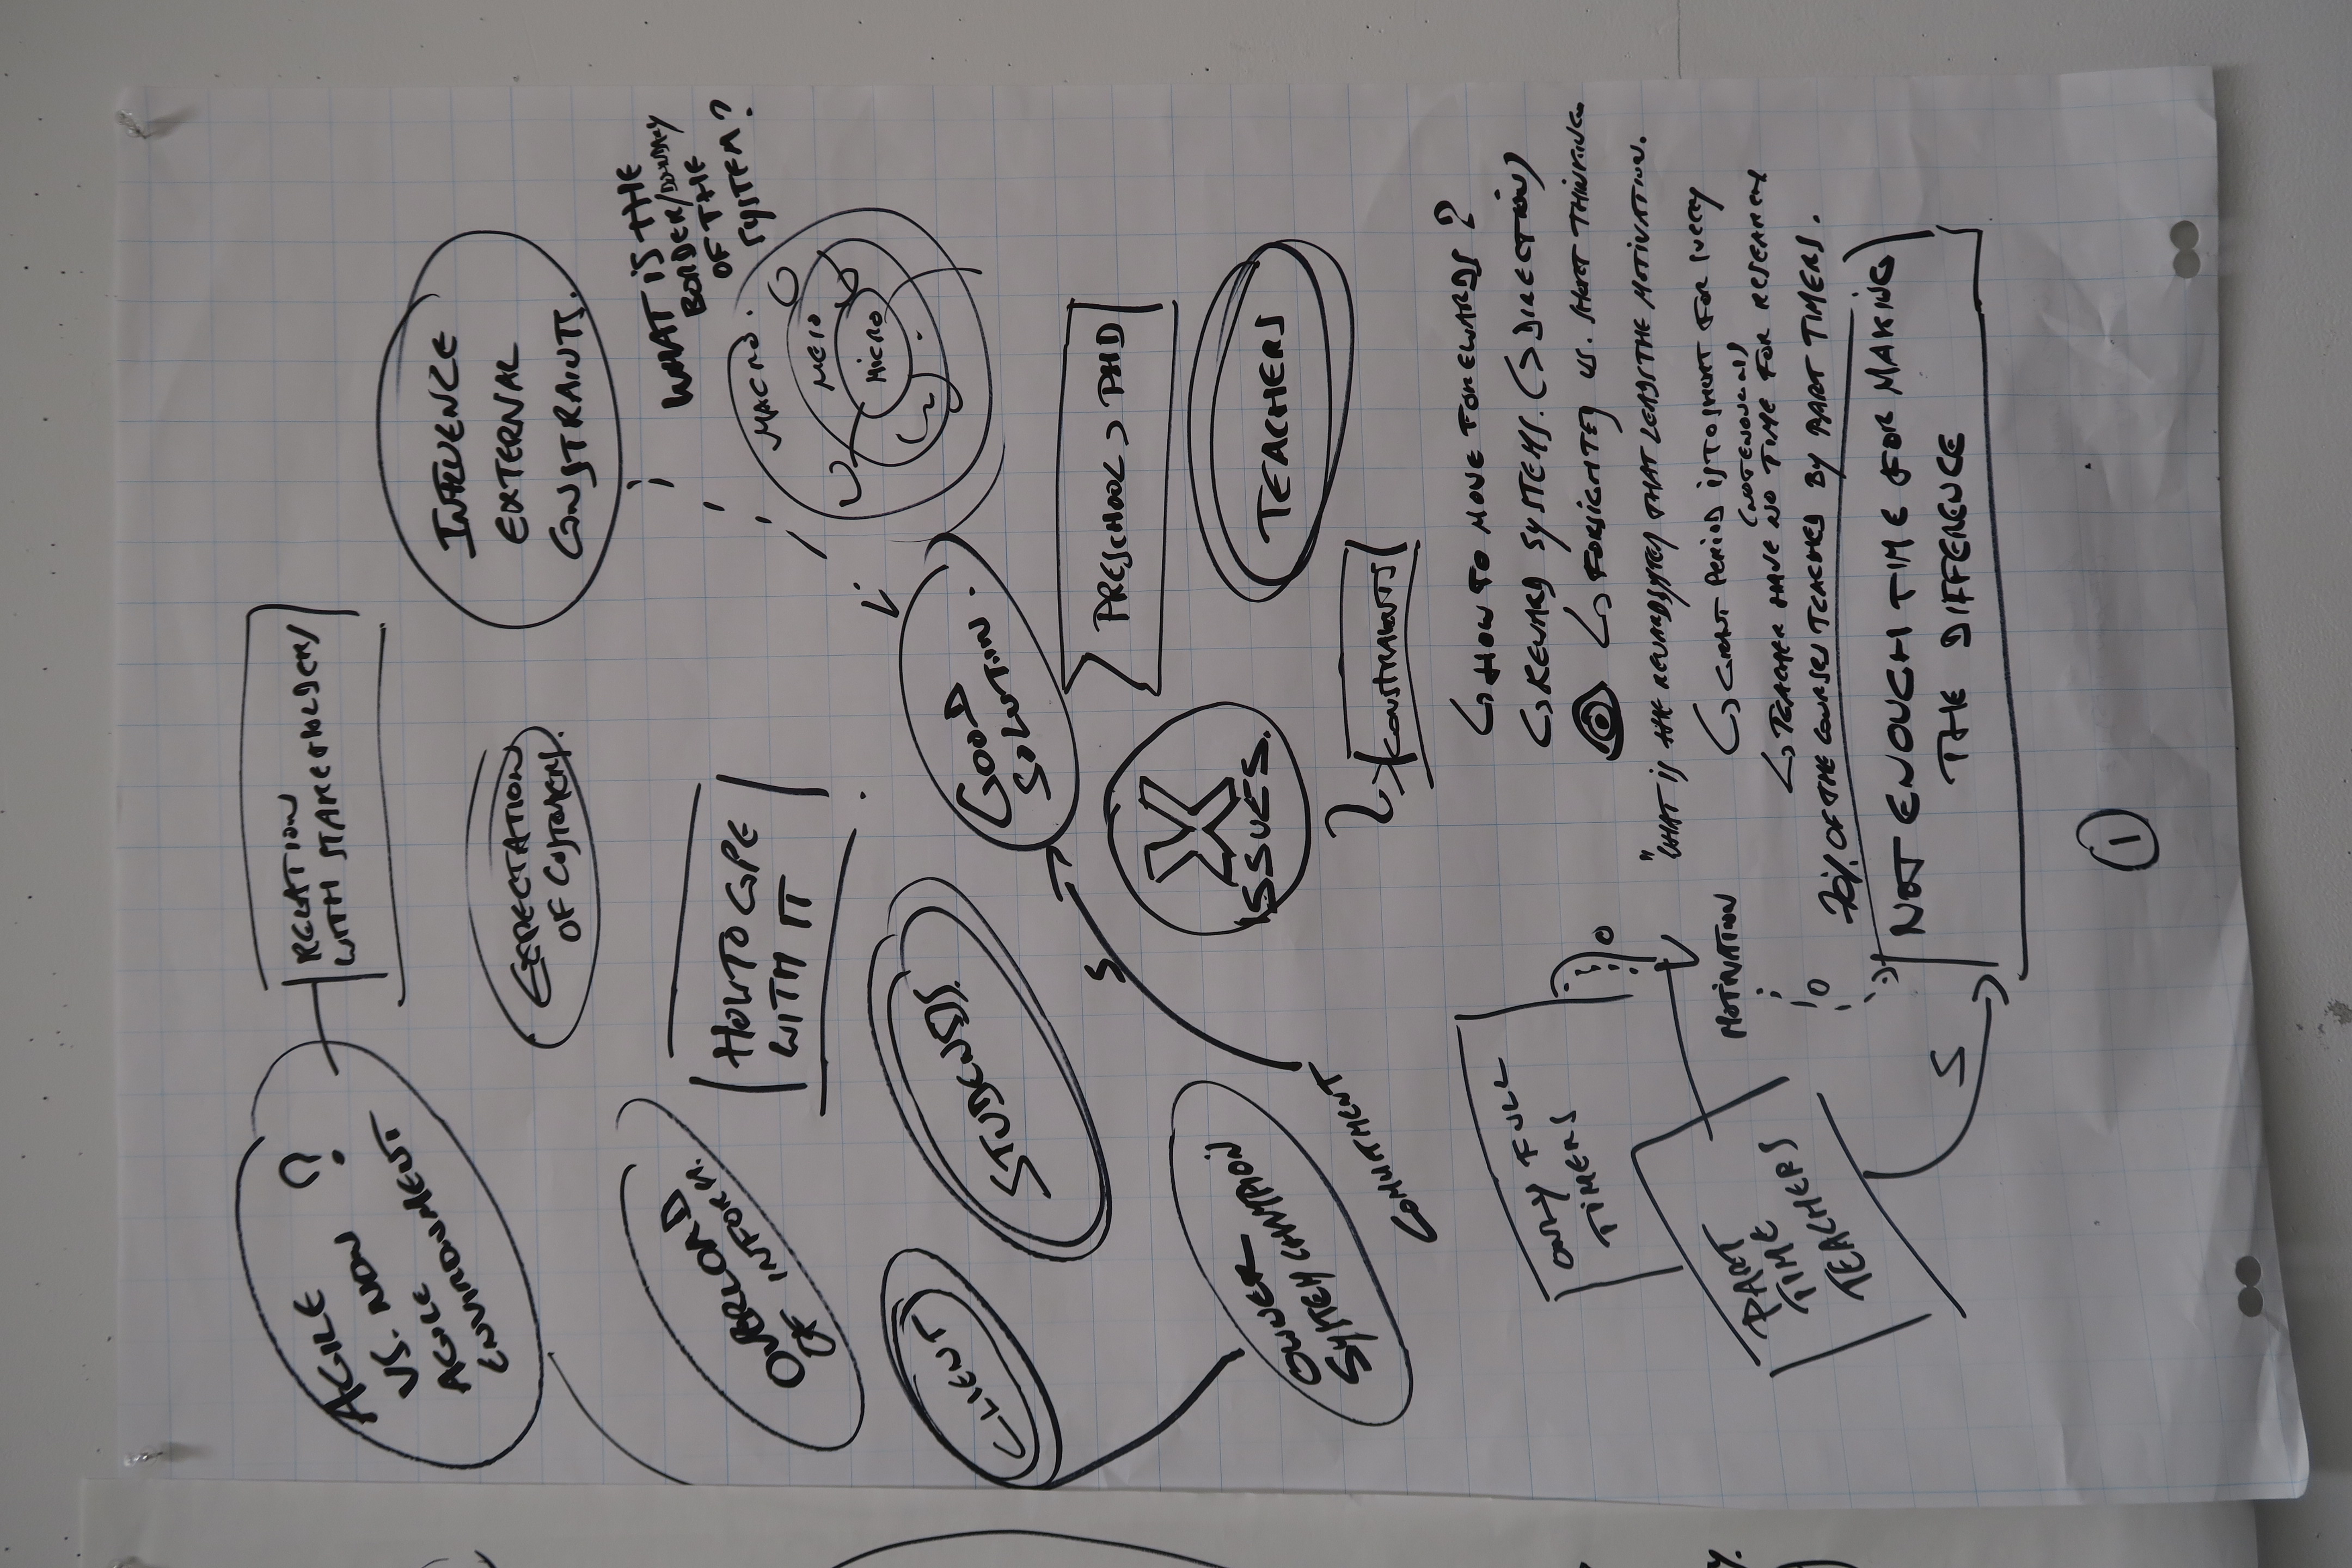 AGILE ?
VS. NON
AGILE
ENVIRONMENT.
RELATION
WITH STAKEHOLDERS
INFLUENCE
EXTERNAL
CONSTRAINTS.
EXPECTATION
OF CUSTOMERS.
WHAT IS THE
BORDER/BOUNDARY
OF THE
SYSTEM?
OVERLOAD
OF INFORM.
HOW TO COPE
WITH IT
MACRO.
MESO
MICRO
STUDENSS.
CLIENT
GOOD
SOLUTION.
PRESCHOOL > PHD
S
X
ISSUES.
TEACHERS
OWNER
SYSTEM CHAMPION
COMMITMENT
CONSTRAINTS
HOW TO MOVE FOREWARDS?
REWARD SYSTEMS. (> DIRECTION)
FORSIGHTED VS. SHORT THINKING
"WHAT IS THE REWARDSYSTEM THAT LEADS THE MOTIVATION.
GRANT PERIOD IS TO SHORT FOR EVERY
(NOT ENOUGH)
TEACHER HAVE NO TIME FOR RESEARCH
OF THE COURSES TEACHED BY PART TIMERS.
ONLY FULL
TIMERS
MOTIVATION
PART
TIME
TEACHERS
S
NOT ENOUGH TIME FOR MAKING
THE DIFFERENCE
1